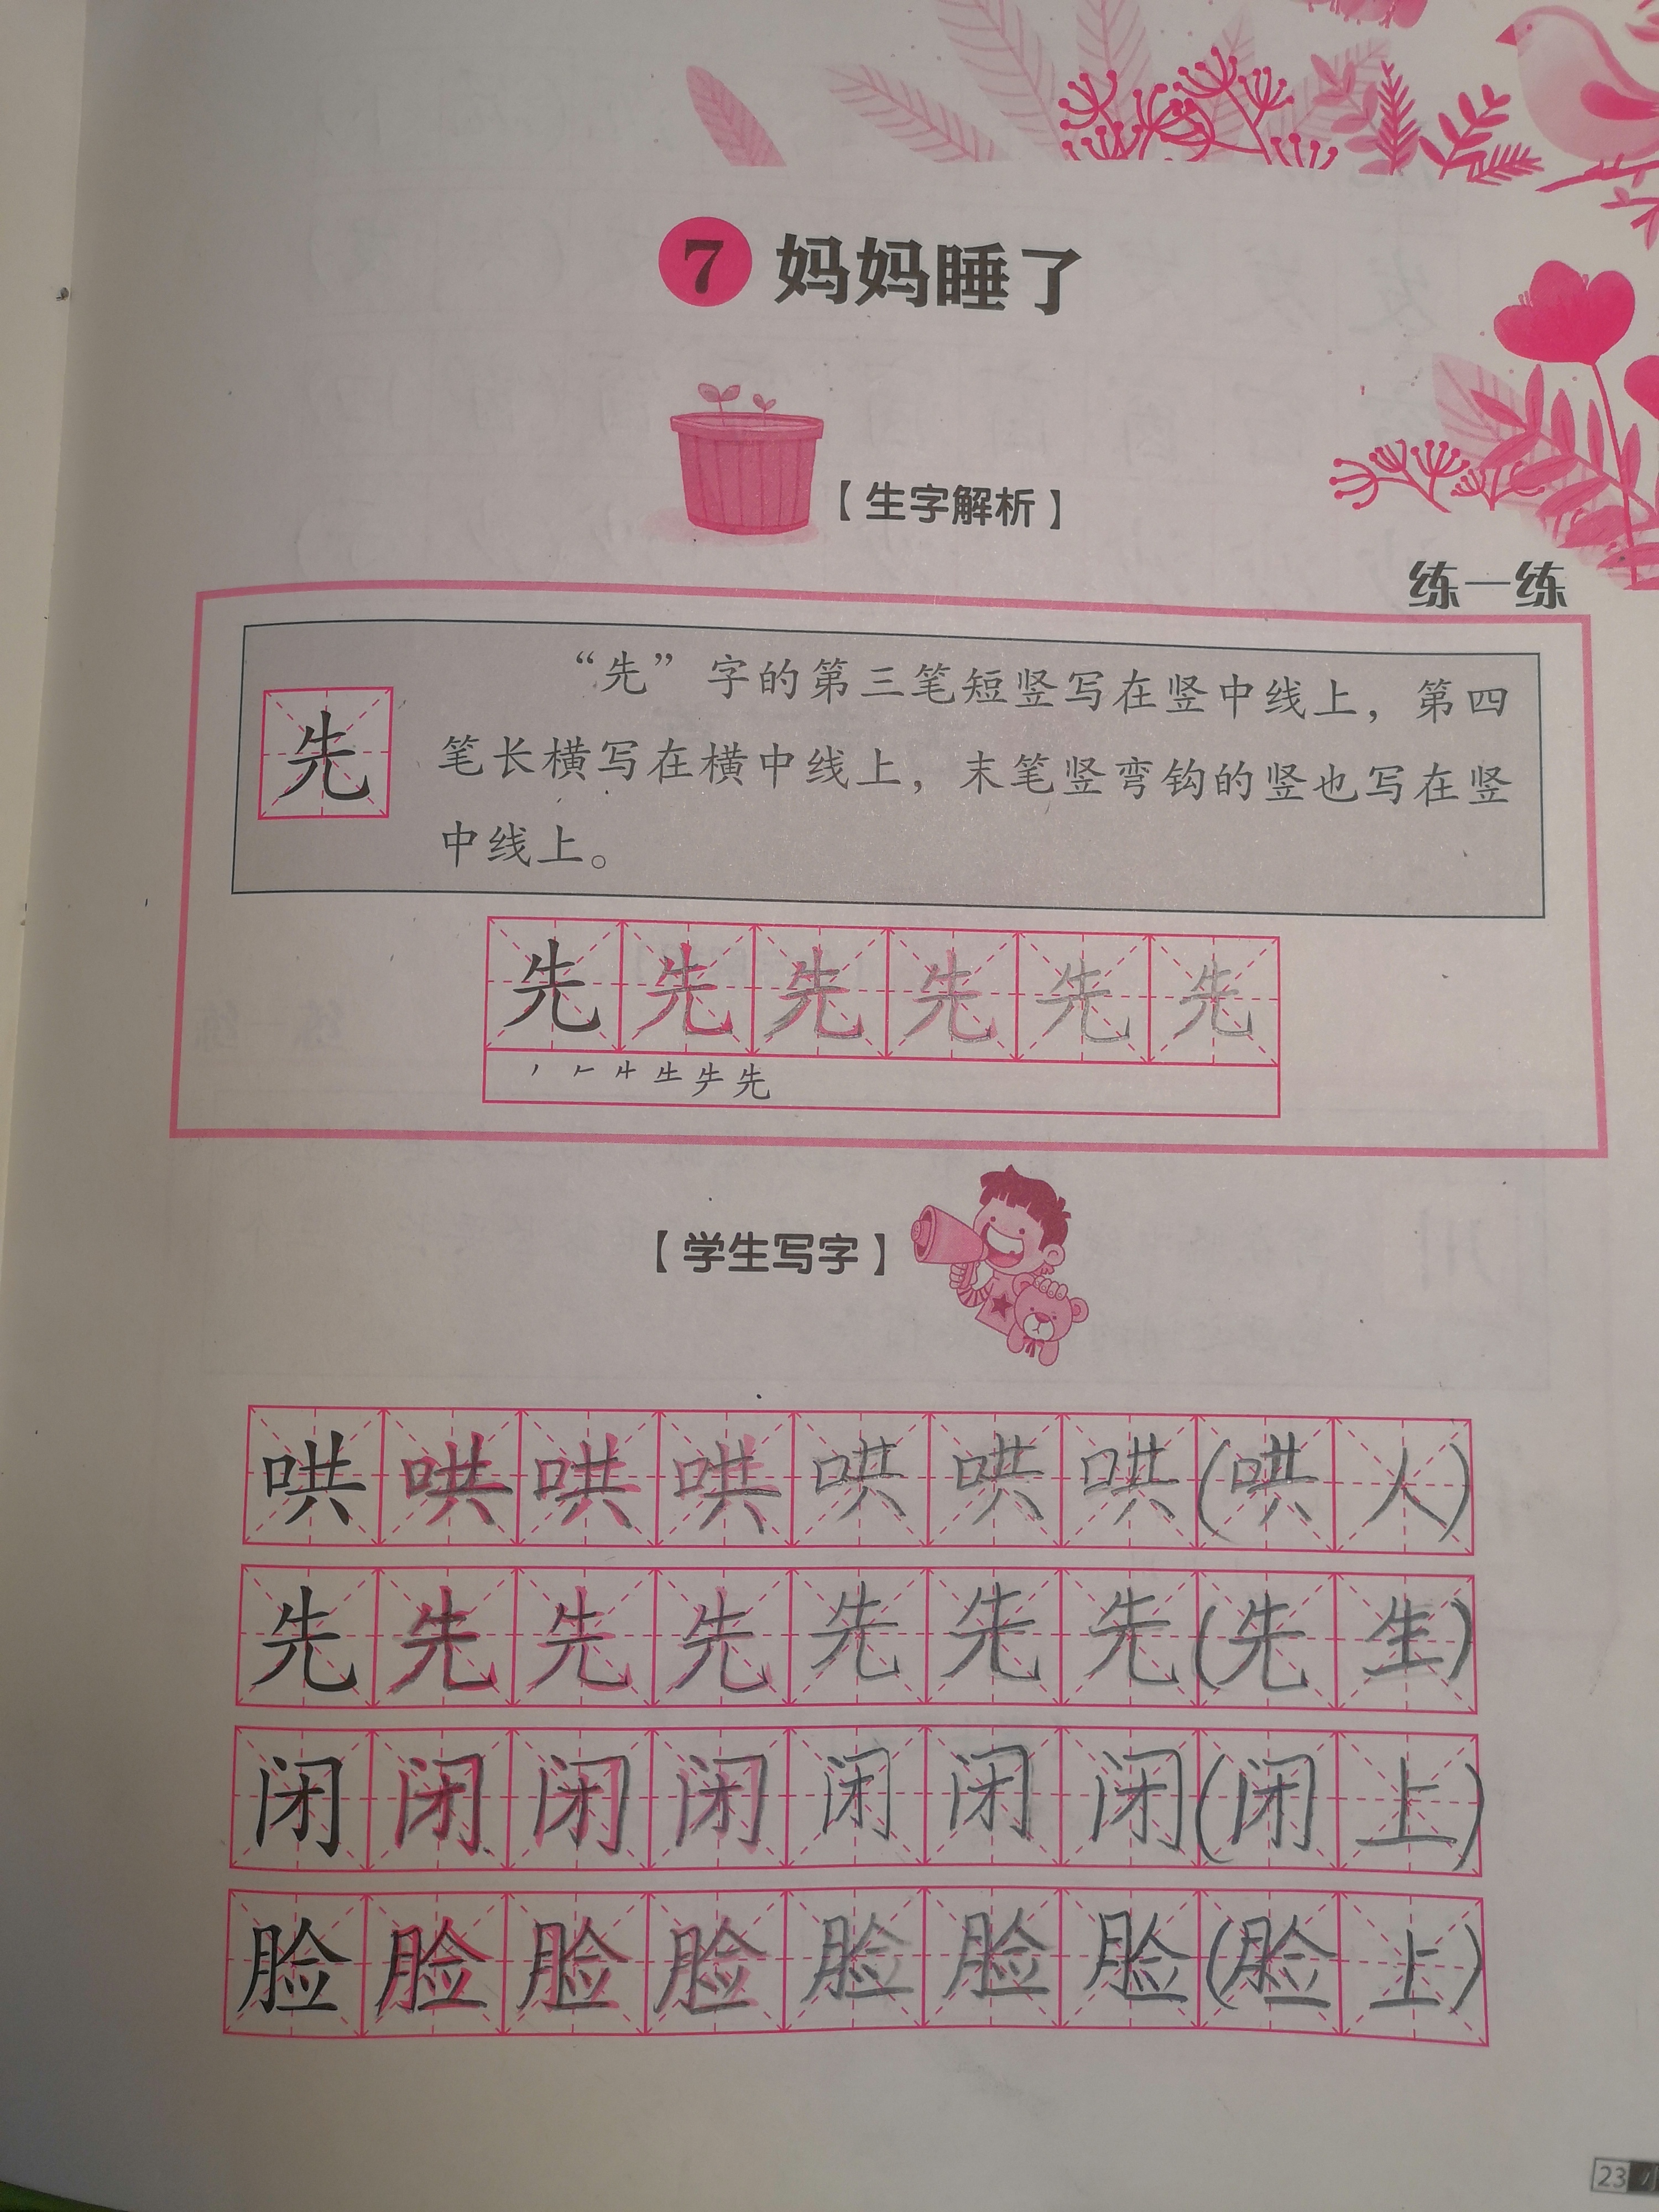 7 妈妈睡了
【生字解析】
练一练
先
“先”字的第三笔短竖写在竖中线上，第四
笔长横写在横中线上，末笔竖弯钩的竖也写在竖
中线上。
先 先 先 先 先 先
【学生写字】
哄 哄 哄 哄 哄 哄 哄 (哄 人)
先 先 先 先 先 先 先 (先 生)
闭 闭 闭 闭 闭 闭 闭 (闭 上)
脸 脸 脸 脸 脸 脸 脸 (脸 上)
23